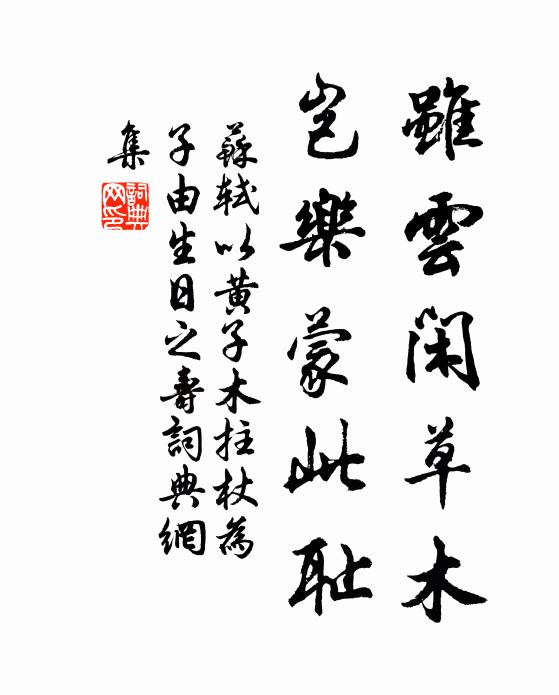 雖雲閑草木
豈樂蒙此恥
蘇軾以黃子木拄杖為
子由生日之壽詞典網
集
詞典
网印